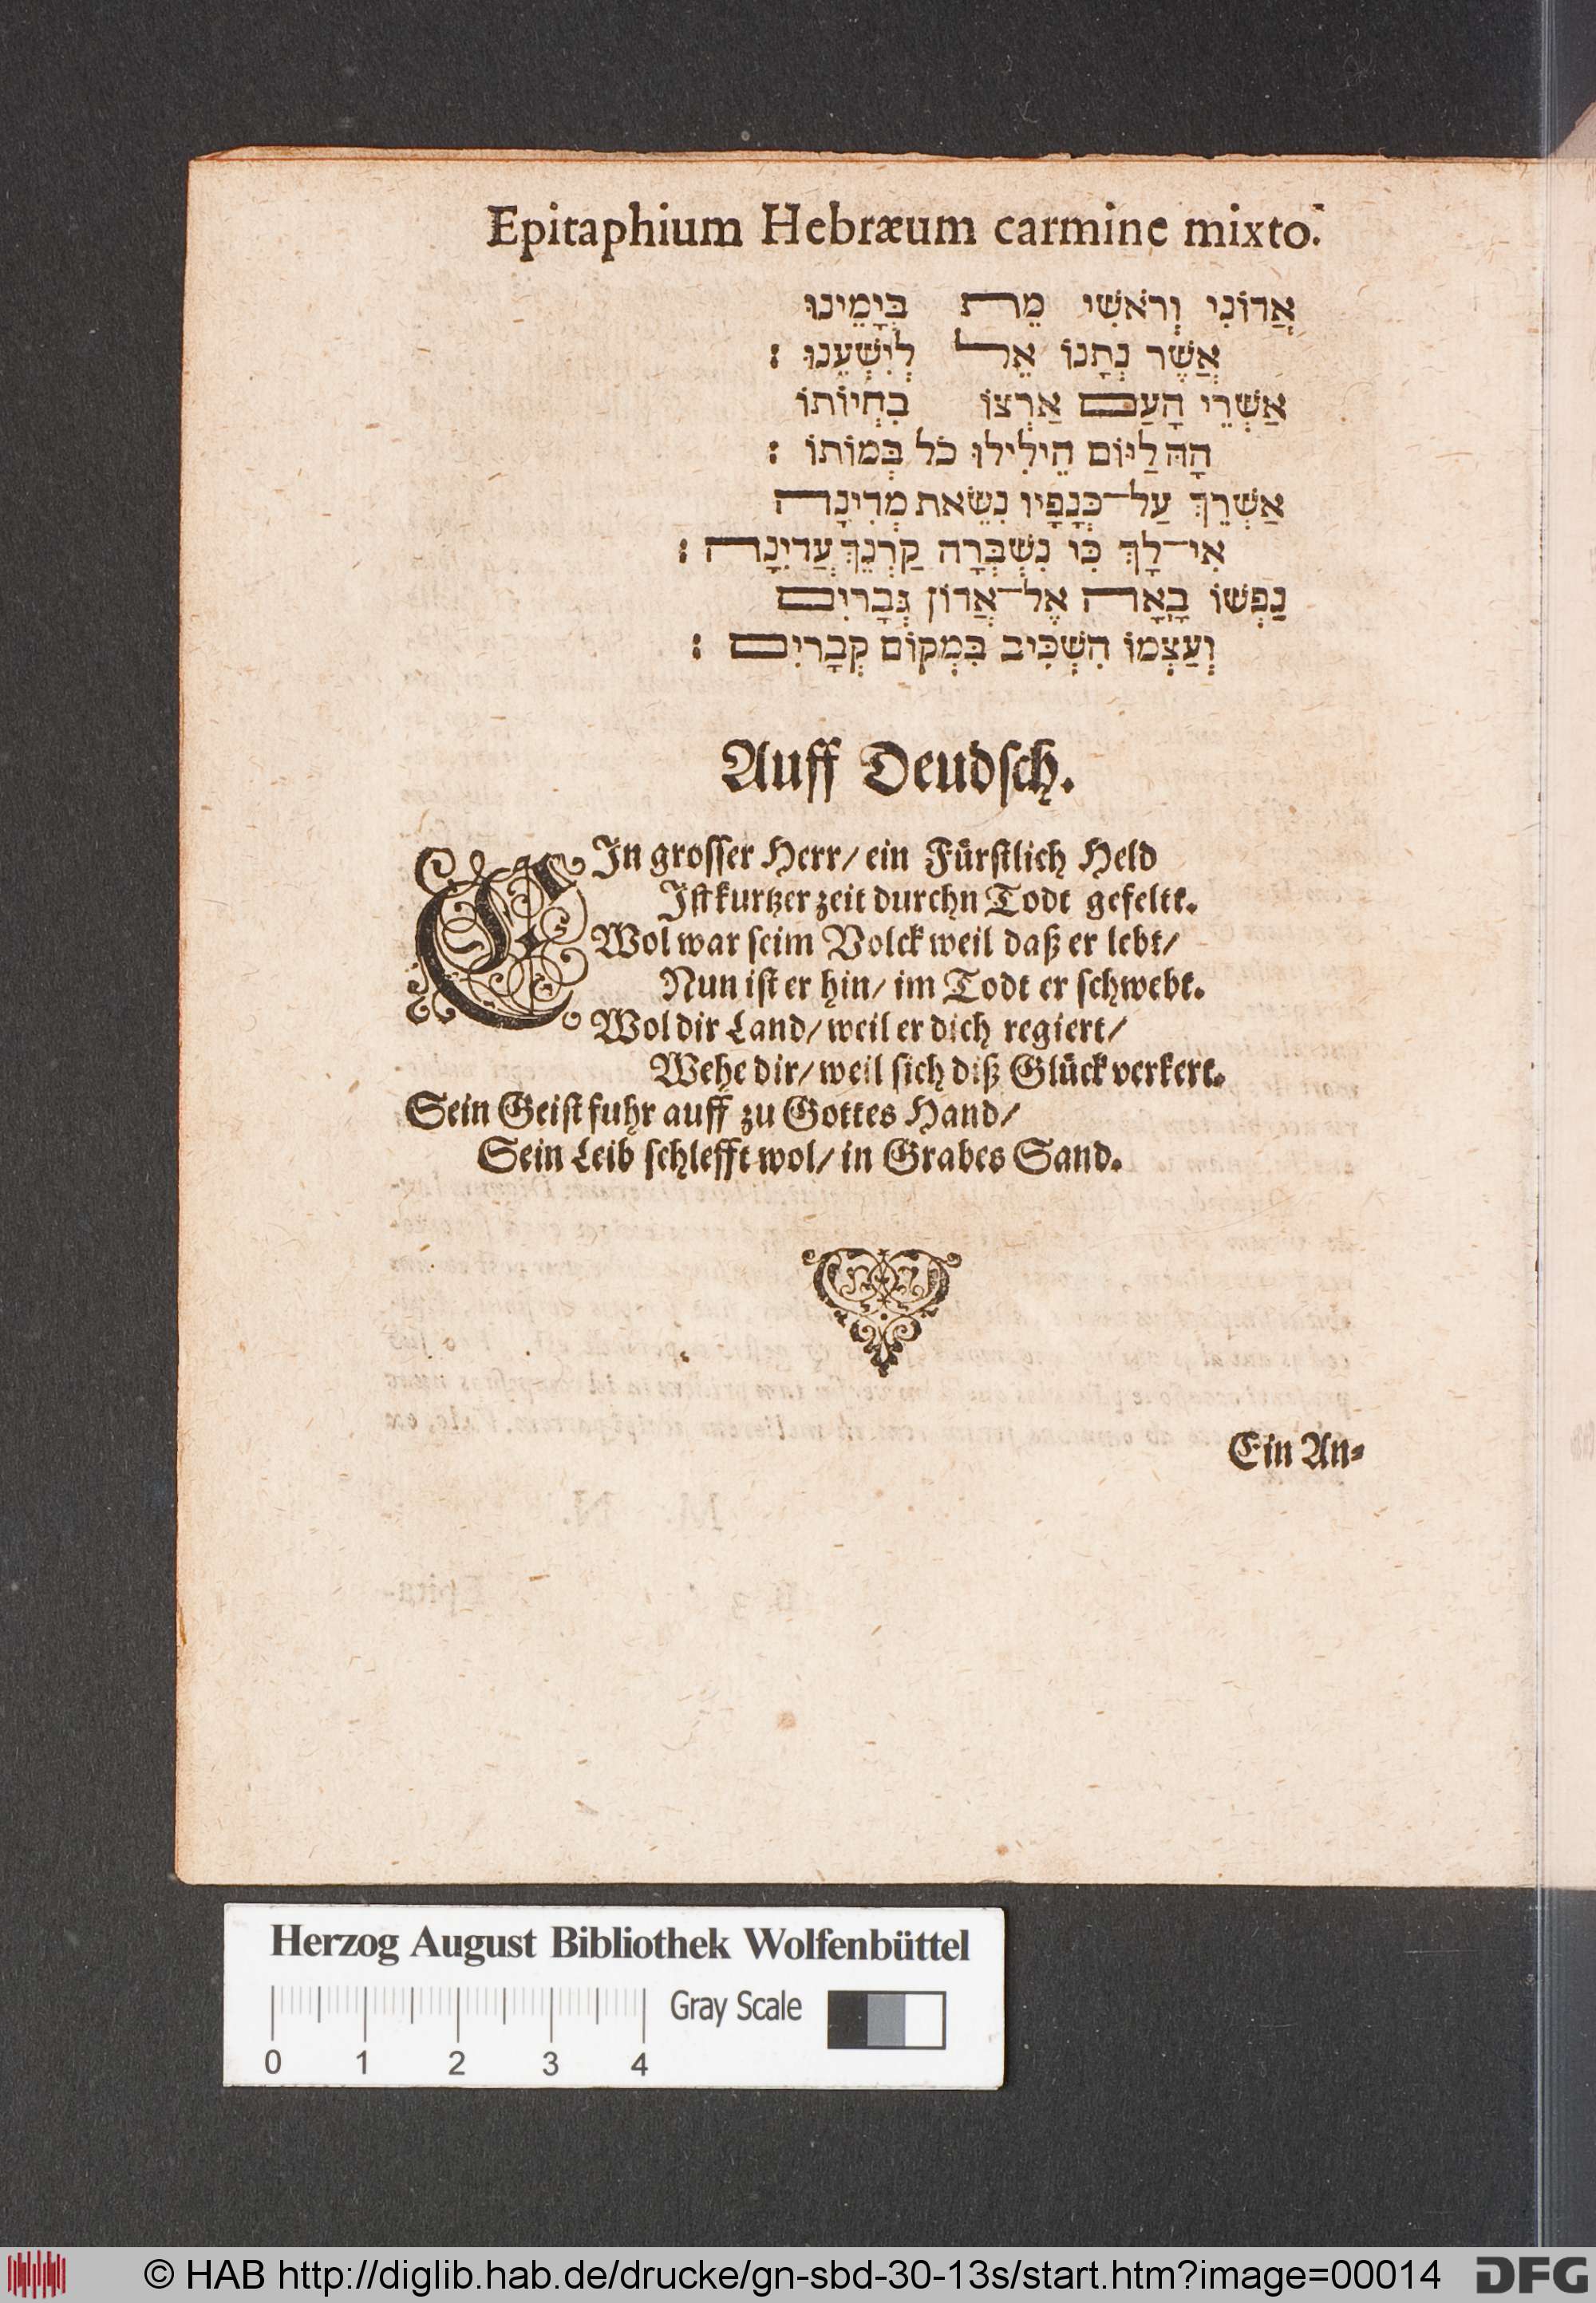 Epitaphium Hebræum carmine mixto.
אֲדוֹנִי וְרֹאשִׁי מֵת בְּיָמֵינוּ
אֲשֶׁר נְתָנוֹ אֵל לְיִשְׁעֵנוּ :
אַשְׁרֵי הָעַם אַרְצוֹ בִחְיוֹתוֹ
הָהּ לַיּוֹם הֵילִילוּ כֹל בְּמוֹתוֹ :
אַשְׁרֵךְ עַל־כְּנָפָיו נִשֵּׂאת מְדִינָה
אִי־לָךְ כִּי נִשְׁבְּרָה קַרְנֵךְ עֲדִינָה :
נַפְשׁוֹ בָאָה אֶל־אֲדוֹן גְּבָרִים
וְעַצְמוֹ הִשְׁכִּיב בִּמְקוֹם קְבָרִים :
Auff Deudsch.
EIn grosser Herr/ ein Fürstlich Held
Ist kurtzer zeit durchn Todt gefellt.
Wol war seim Volck weil daß er lebt/
Nun ist er hin/ im Todt er schwebt.
Wol dir Land/ weil er dich regiert/
Wehe dir/ weil sich diß Glück verkert.
Sein Geist fuhr auff zu Gottes Hand/
Sein Leib schlefft wol/ in Grabes Sand.
Ein An-
Herzog August Bibliothek Wolfenbüttel
Gray Scale
0 1 2 3 4
© HAB http://diglib.hab.de/drucke/gn-sbd-30-13s/start.htm?image=00014 DFG